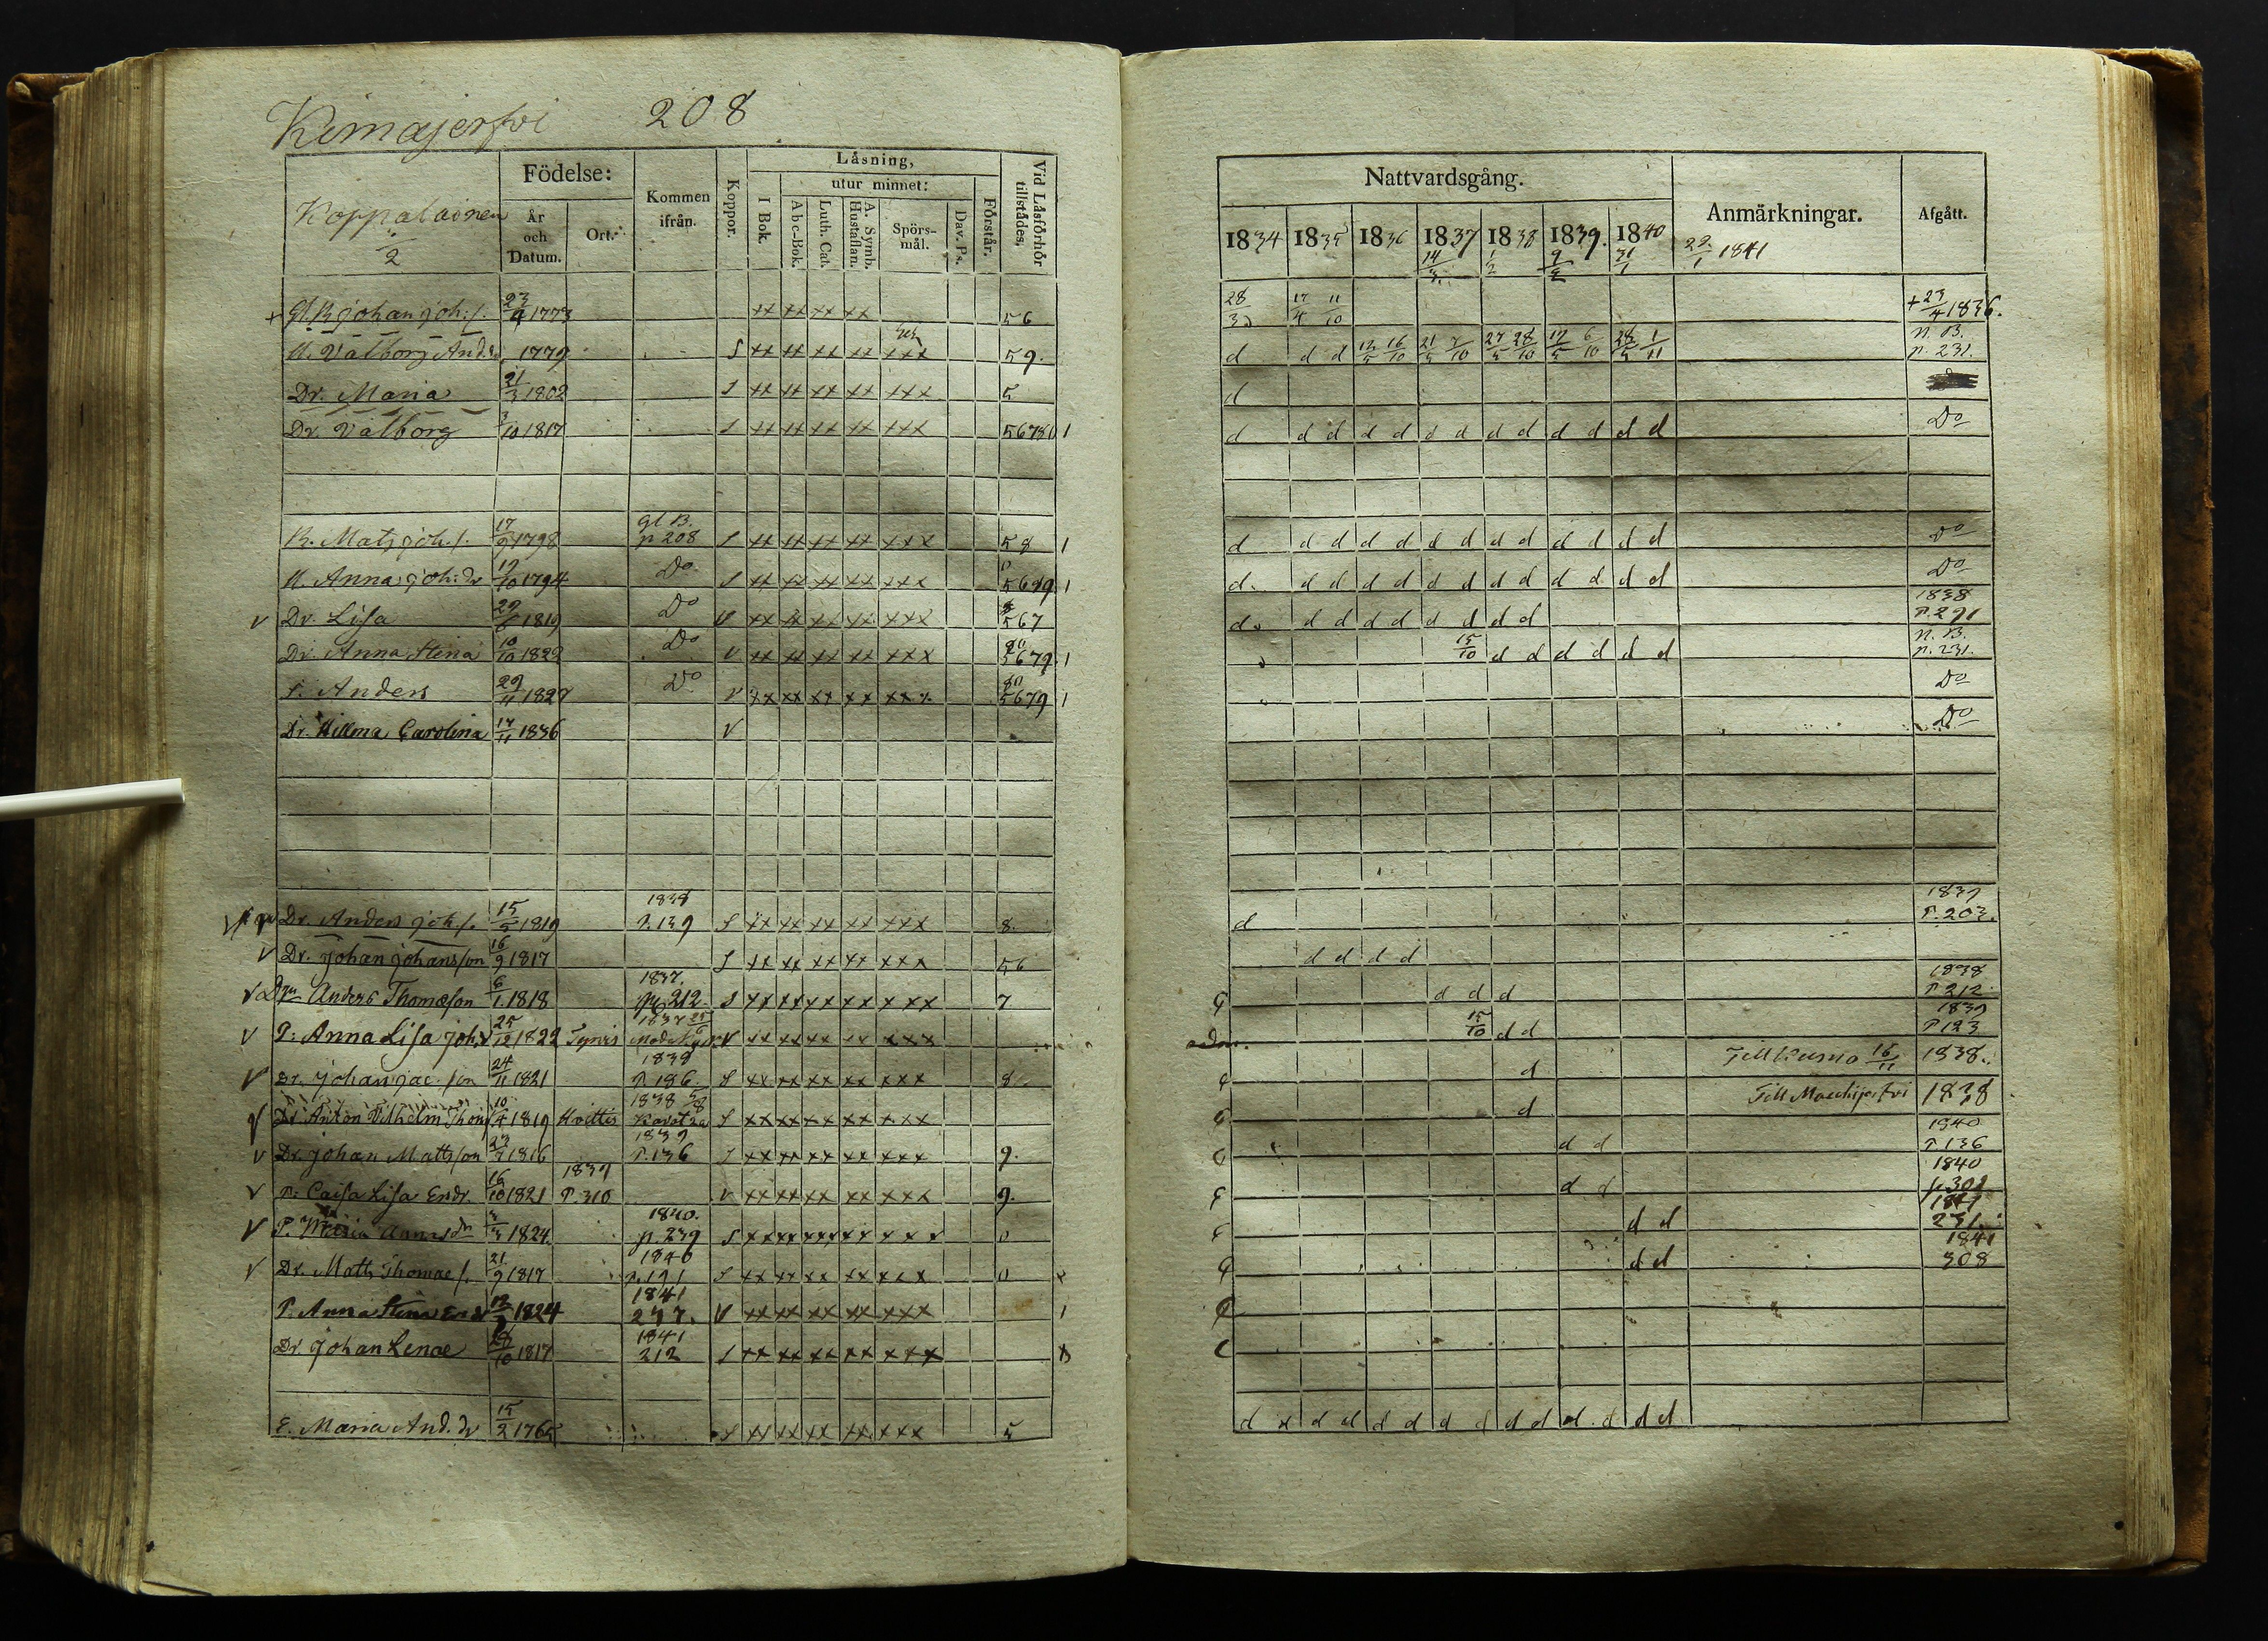 Kimajerfvi 208
Födelse: Kommen ifrån. Koppor. Läsning, Vid Läsförhör tillstädes.
Koppalainen
2
År och Datum. Ort. I Bok. utur minnet: Förstår.
A b c-Bok. Luth. Cat. A. Symb. Hustaflan. Spörs-mål. Dav. Ps.
Nattvardsgång. Anmärkningar. Afgått.
1834 1835 1836 1837 1838 1839. 1840
14/3 9/2 31/1 1841
+ Gl. B. Johan Joh:s. 23/4 1773 xx xx xx xx 56 28/3 17/4 11/10 + 23/4 1836.
H. Valborg And.dr 1779 S xx xx xx xx xxx 59. d d d 16/10 21/5 7/10 27/5 28/10 6/10 28/5 1/11 N. B. p. 231.
Dr. Maria 21/3 1802 S xx xx xx xx xxx 5 d
Dr. Valborg 3/10 1817 S xx xx xx xx xxx 1 d d d d d d d d d d d d d Do
B. Mats Joh.s. 17/9 1798 gl B. p 208 S xx xx xx xx xxx 58 1 d d d d d d d d d d d d d Do
H. Anna Joh:dr 19/10 1794 Do S xx xx xx xx xxx 1 d. d d d d d d d d d d d d Do
v Dr. Lisa 1819 Do v xx xx xx xx xxx 567 d d d d d d d d d 1838 P. 291
Dr. Anna Stina 10/10 1822 Do v xx xx xx xx xxx 5679. 1 15/10 d d d d d d N. B. p. 231.
S. Anders 29/11 1827 Do v xx xx xx xx xxx 5679 1 Do
Dr. Hilma Carolina 14/11 1836 v Do
Dr. Anders Joh.s. 15/5 1819 1838 P. 139 S xx xx xx xx xxx 8. d 1839 P. 203.
v Dr. Johan Johansson 16/9 1817 S xx xx xx xx xxx 56 d d d d
v Anders Thomasson 6/1 1818 1837. pag 212 S xx xx xx xx xxx 7 d d d 1838 P 212
v P: Anna Lisa Joh.dr 25/12 1822 1837 v xx xx xx xx xxx 15/10 d d 1839 P 123
v Dr. Johan Jac.son 24/11 1821 1838 P. 186. S xx xx xx xx xxx 8 d Till Kumo 16/11 1838.
Dr Anton Vilhelm Thoms 10/4 1819 Hvittis 1838 5/8 S xx xx xx xx xxx d Till 1838
v Dr. Johan Mattsson 23/7 1816 1839 P. 136 S xx xx xx xx xxx 9. d d 1840 P 136
v P: Caisa Lisa Er.dr. 16/10 1821 1839 P. 310 v xx xx xx xx xxx 9. d d 1840 p. 302
v P. Maria And.dr 1824 1840. p. 239 S xx xx xx xx xxx 0 d d 1841 231.
v Dr. Matts Thomae s. 21/9 1817 1840 p. 191 S xx xx xx xx xxx 0 x d d 1841 308
P. Anna Stina Er.dr 1824 1841 v xx xx xx xx xxx 1
Dr Johan Lenae 28/10 1817 1841 212 S xx xx xx xx xxx
E. Maria And.dr 15/2 1765 S xx xx xx xx xxx 5 d d d d d d d d d d d d d d